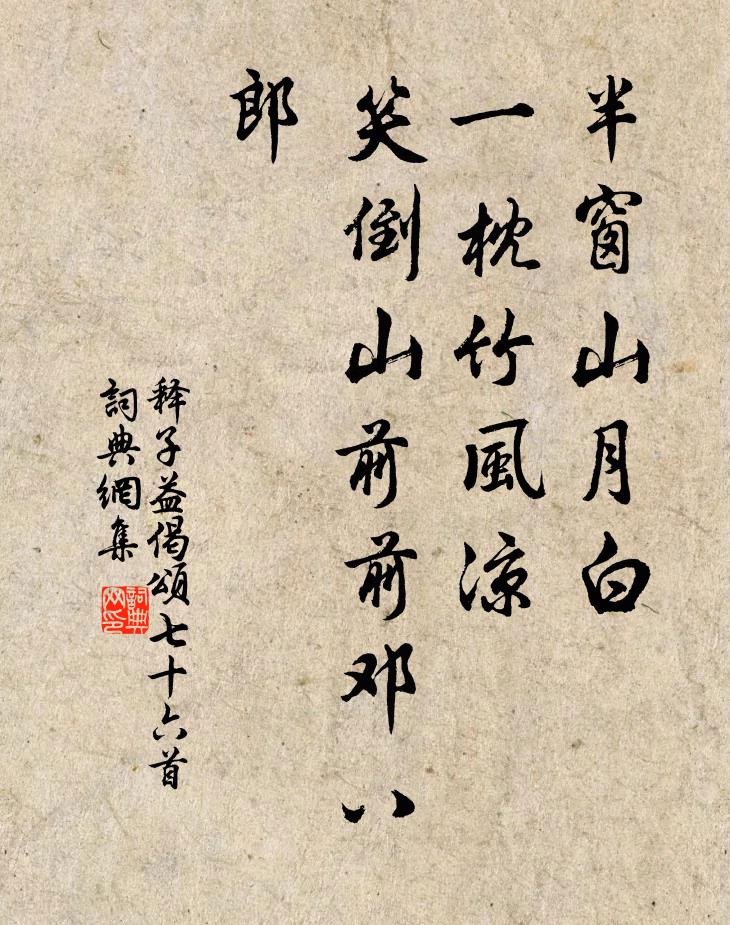 半窗山月白
一枕竹風凉
笑倒山前前邓八
郎
释子益偈頌七十六首
詞典網集
詞典網印